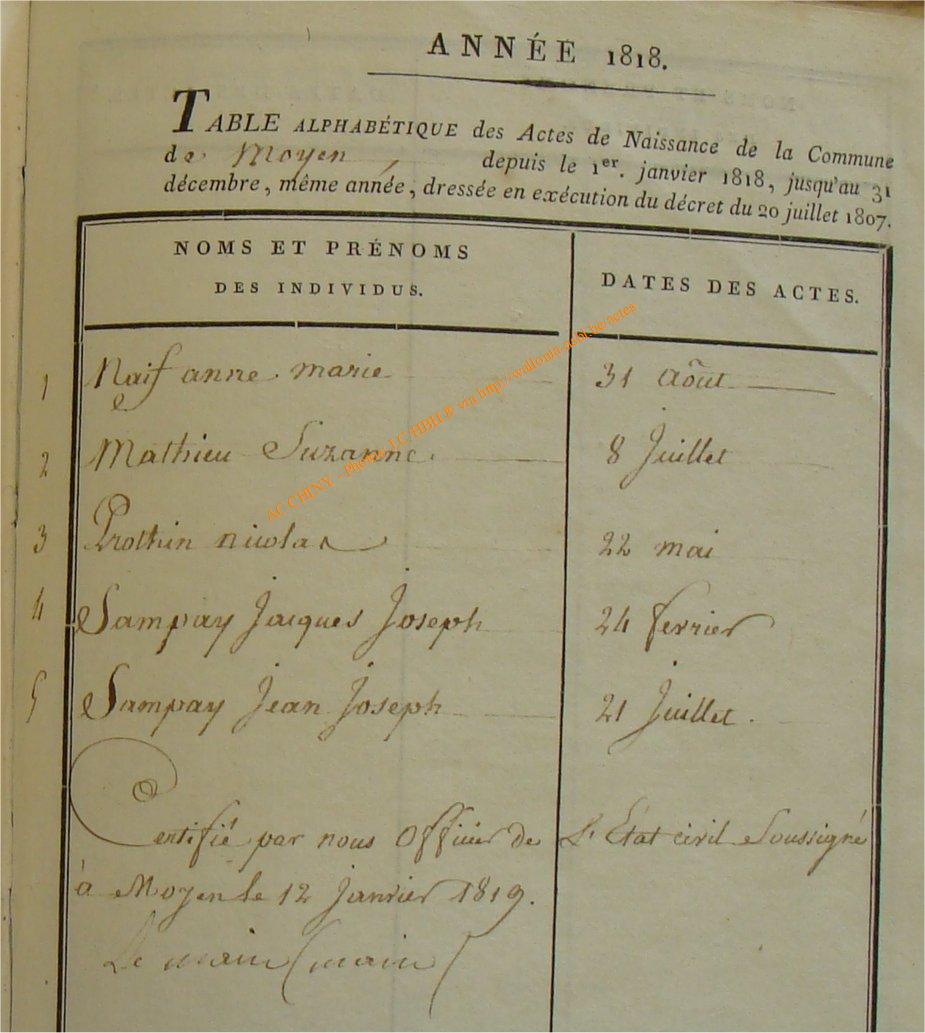 ANNÉE 1818.
TABLE ALPHABÉTIQUE des Actes de Naissance de la Commune
de Moyen, depuis le 1er. janvier 1818, jusqu'au 31
décembre, même année, dressée en exécution du décret du 20 juillet 1807.
NOMS ET PRÉNOMS
DES INDIVIDUS.
DATES DES ACTES.
1 Naif anne marie 31 Aôut
2 Mathieu Suzanne. 8 Juillet
3 Prothin nicolas 22 mai
4 Sampay Jacques Joseph 24 fevrier
5 Sampay Jean Joseph 21 Juillet.
Certifié par nous Officier de L'Etat civil Soussigné
à Moyen le 12 Janvier 1819.
Le
AC CHINY - Photo J.C HBILR via http://wallonia-asbl.be/actes